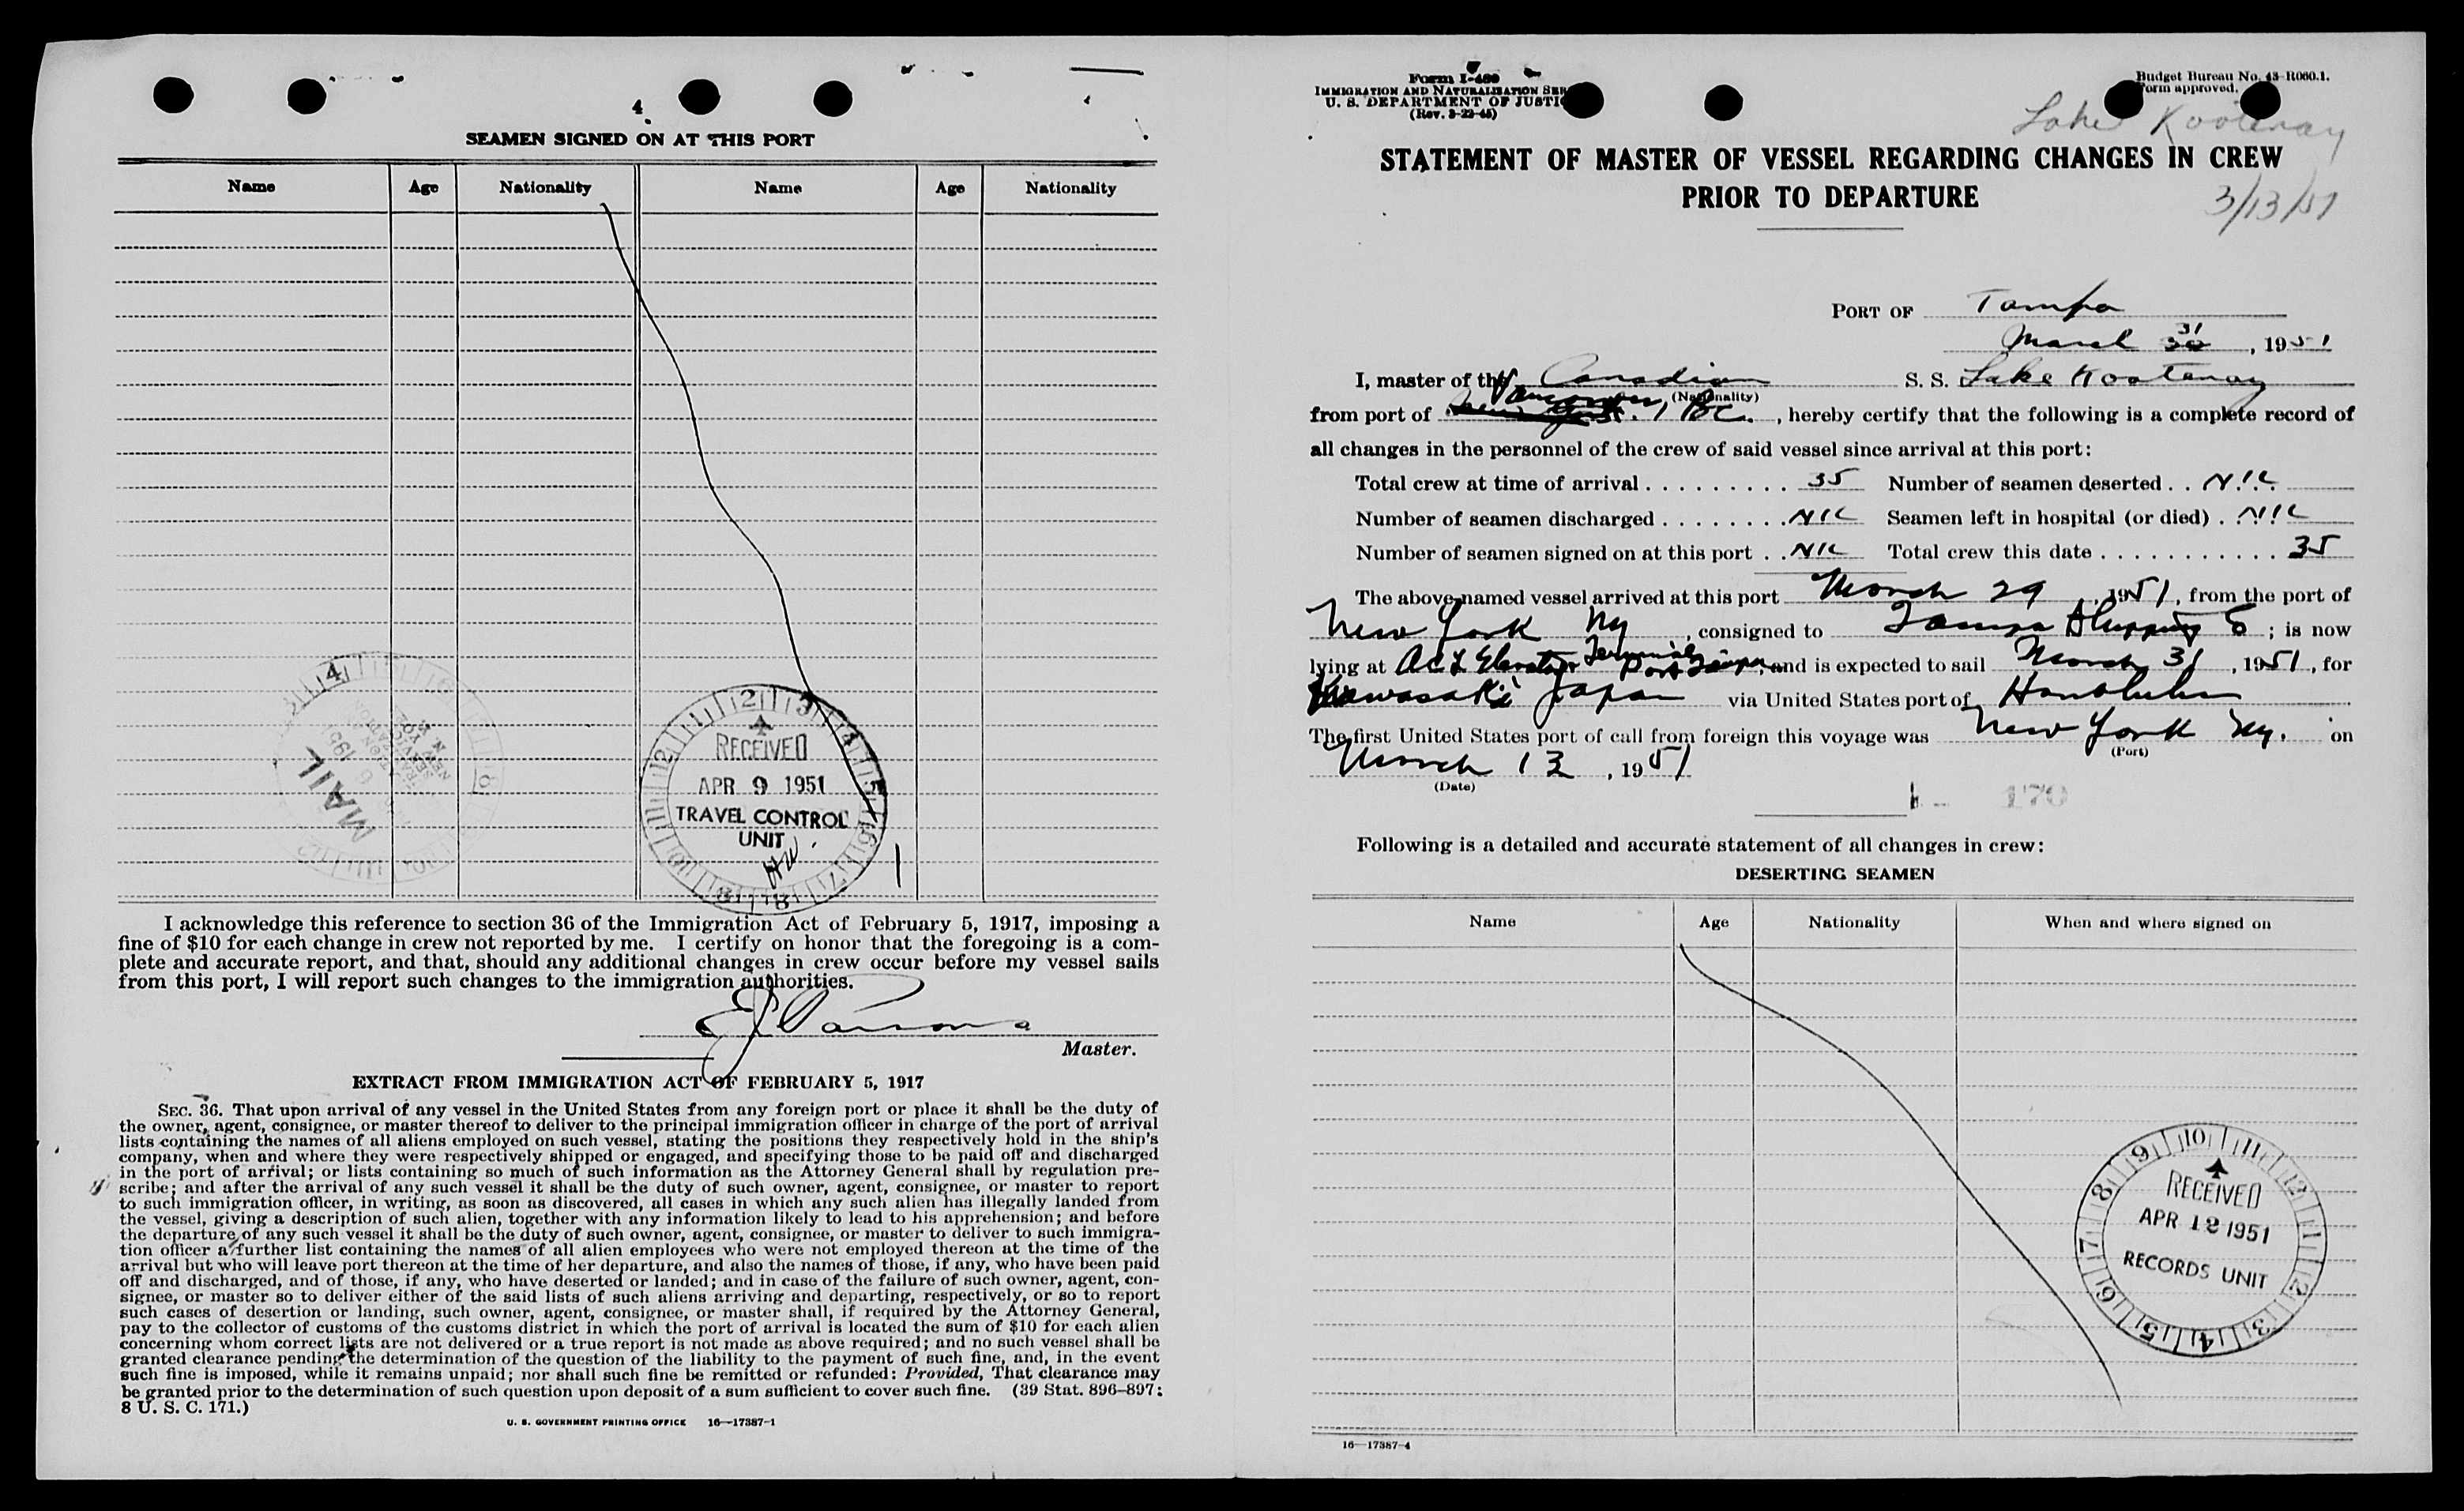 4
SEAMEN SIGNED ON AT THIS PORT
Name Age Nationality Name Age Nationality
4
MAIL
NEW YORK, N. Y.
12 3 4 5 6 7 8 9 10 11 12
RECEIVED
APR 9 1951
TRAVEL CONTROL
UNIT
I acknowledge this reference to section 36 of the Immigration Act of February 5, 1917, imposing a
fine of $10 for each change in crew not reported by me. I certify on honor that the foregoing is a com-
plete and accurate report, and that, should any additional changes in crew occur before my vessel sails
from this port, I will report such changes to the immigration authorities.
Parsons
Master.
EXTRACT FROM IMMIGRATION ACT OF FEBRUARY 5, 1917
SEC. 36. That upon arrival of any vessel in the United States from any foreign port or place it shall be the duty of
the owner, agent, consignee, or master thereof to deliver to the principal immigration officer in charge of the port of arrival
lists containing the names of all aliens employed on such vessel, stating the positions they respectively hold in the ship's
company, when and where they were respectively shipped or engaged, and specifying those to be paid off and discharged
in the port of arrival; or lists containing so much of such information as the Attorney General shall by regulation pre-
scribe; and after the arrival of any such vessel it shall be the duty of such owner, agent, consignee, or master to report
to such immigration officer, in writing, as soon as discovered, all cases in which any such alien has illegally landed from
the vessel, giving a description of such alien, together with any information likely to lead to his apprehension; and before
the departure of any such vessel it shall be the duty of such owner, agent, consignee, or master to deliver to such immigra-
tion officer a further list containing the names of all alien employees who were not employed thereon at the time of the
arrival but who will leave port thereon at the time of her departure, and also the names of those, if any, who have been paid
off and discharged, and of those, if any, who have deserted or landed; and in case of the failure of such owner, agent, con-
signee, or master so to deliver either of the said lists of such aliens arriving and departing, respectively, or so to report
such cases of desertion or landing, such owner, agent, consignee, or master shall, if required by the Attorney General,
pay to the collector of customs of the customs district in which the port of arrival is located the sum of $10 for each alien
concerning whom correct lists are not delivered or a true report is not made as above required; and no such vessel shall be
granted clearance pending the determination of the question of the liability to the payment of such fine, and, in the event
such fine is imposed, while it remains unpaid; nor shall such fine be remitted or refunded: Provided, That clearance may
be granted prior to the determination of such question upon deposit of a sum sufficient to cover such fine. (39 Stat. 896–897;
8 U. S. C. 171.)
U. S. GOVERNMENT PRINTING OFFICE 16—17387-1
Form I-489
IMMIGRATION AND NATURALIZATION SER
U. S. DEPARTMENT OF JUSTI
(Rev. 3-22-45)
Budget Bureau No. 43-R060.1.
Form approved.
Lake Kootenay
STATEMENT OF MASTER OF VESSEL REGARDING CHANGES IN CREW
PRIOR TO DEPARTURE
3/13/51
PORT OF Tampa
March 31, 1951
I, master of the Canadian S. S. Lake Kootenay
(Nationality)
from port of Vancouver, BC., hereby certify that the following is a complete record of
all changes in the personnel of the crew of said vessel since arrival at this port:
Total crew at time of arrival 35 Number of seamen deserted NIL
Number of seamen discharged NIL Seamen left in hospital (or died) NIL
Number of seamen signed on at this port NIL Total crew this date 35
The above-named vessel arrived at this port March 29, 1951, from the port of
New York Ny, consigned to Tampa Shipping Co; is now
lying at ACL Elevator Terminal Port Tampa, and is expected to sail March 31, 1951, for
Kawasaki Japan via United States port of Honolulu
The first United States port of call from foreign this voyage was New York Ny. on
(Port)
March 13, 1951
(Date)
170
Following is a detailed and accurate statement of all changes in crew:
DESERTING SEAMEN
Name Age Nationality When and where signed on
10 11 12 1 2 3 4 5 6 7 8 9
RECEIVED
APR 12 1951
RECORDS UNIT
16—17387-4